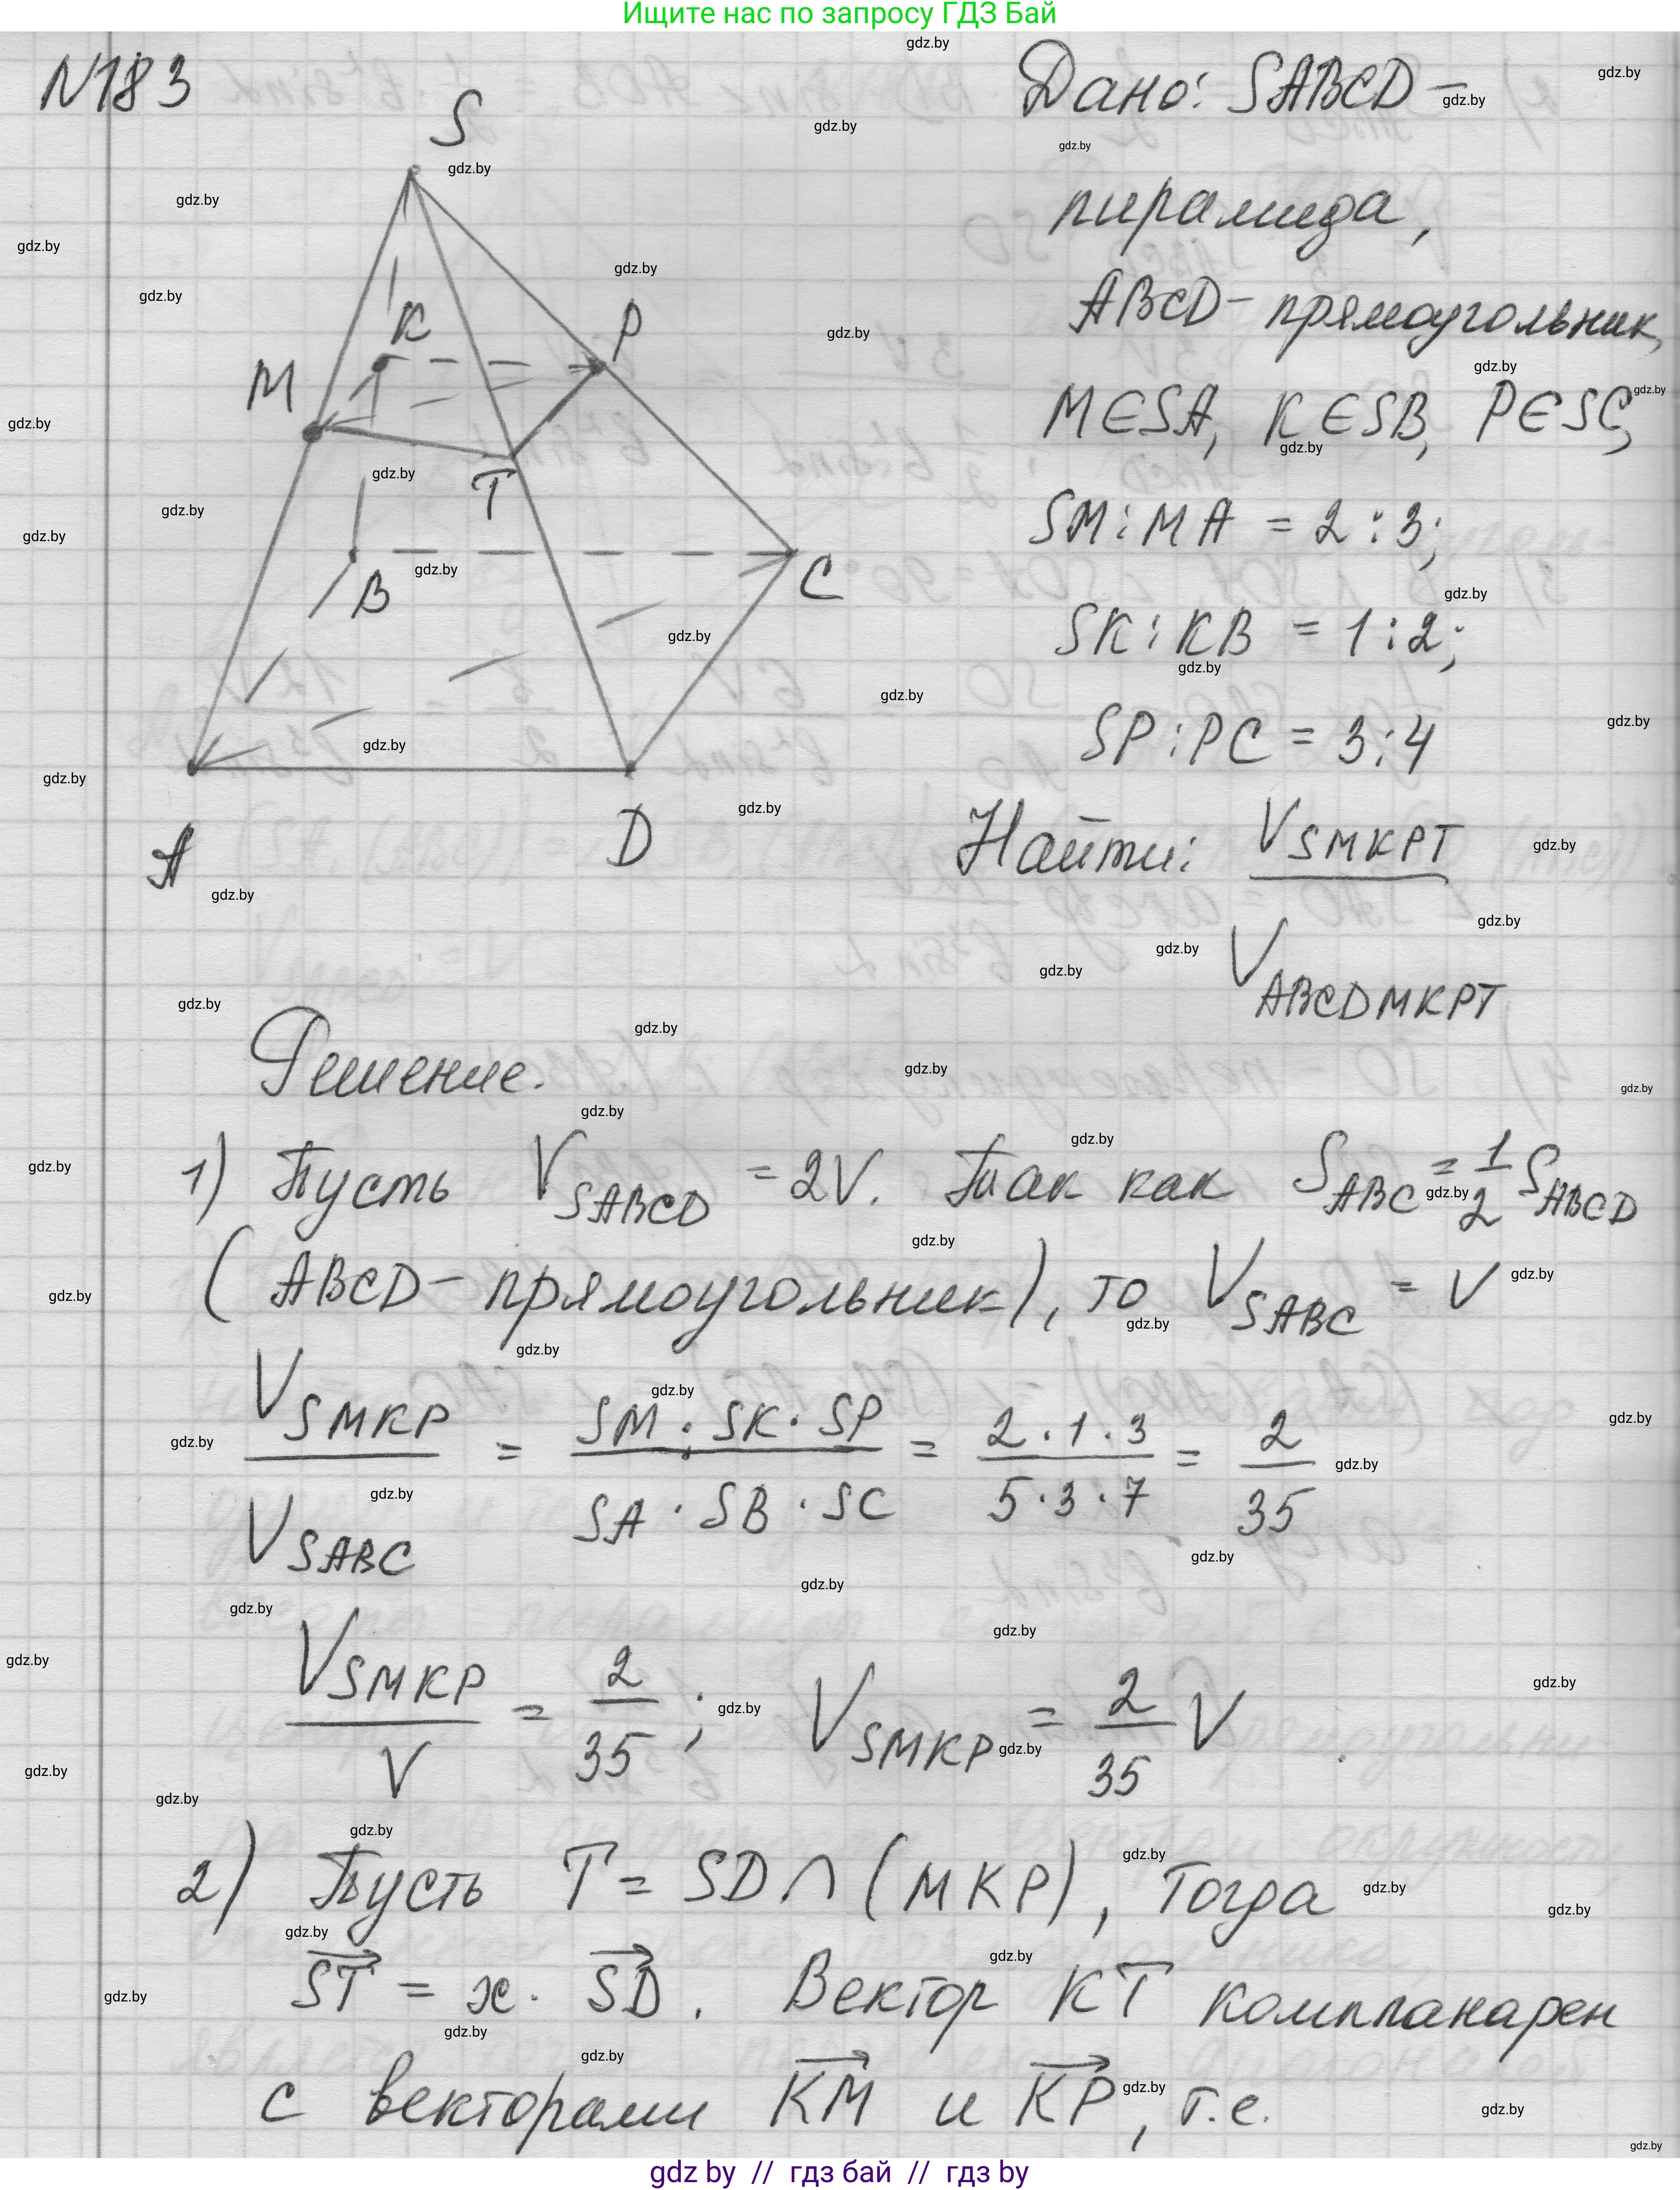 Ищите нас по запросу ГДЗ Бай
N183
S
K
P
M
T
B
C
A
D
Дано: SABCD –
пирамида,
ABCD – прямоугольник,
M∈SA, K∈SB, P∈SC,
SM:MA = 2:3;
SK:KB = 1:2;
SP:PC = 3:4
Найти: V_SMKPT / V_ABCDMKPT
Решение.
1) Пусть V_SABCD = 2V. Так как S_ABC = 1/2 S_ABCD
(ABCD – прямоугольник), то V_SABC = V
V_SMKP / V_SABC = SM · SK · SP / SA · SB · SC = 2·1·3 / 5·3·7 = 2/35
V_SMKP / V = 2/35 ; V_SMKP = 2/35 V
2) Пусть T = SD ∩ (MKP), Тогда
ST = x · SD. Вектор KT компланарен
с векторами KM и KP, т.е.
gdz by // гдз бай // гдз by